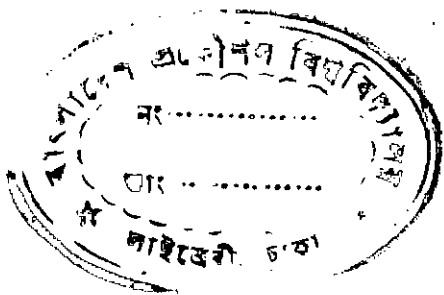 বাংলাদেশ প্রকৌশল বিশ্ববিদ্যালয়
নং ................
তাং ................
লাইব্রেরী ঢাকা